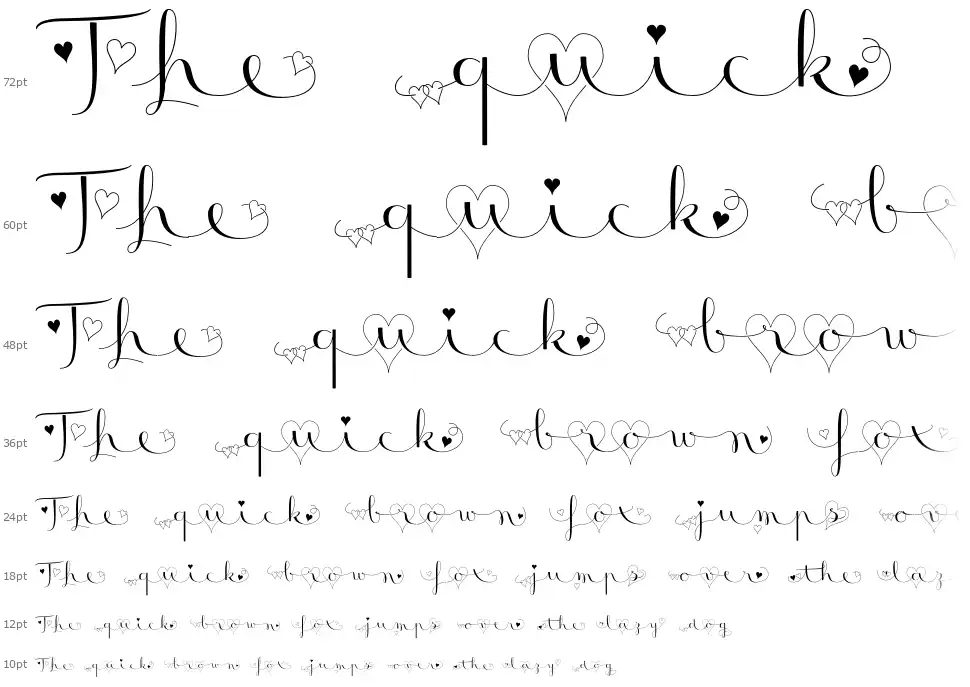 72pt The quick
60pt The quick b
48pt The quick brow
36pt The quick brown fox
24pt The quick brown fox jumps ov
18pt The quick brown fox jumps over the laz
12pt The quick brown fox jumps over the lazy dog
10pt The quick brown fox jumps over the lazy dog